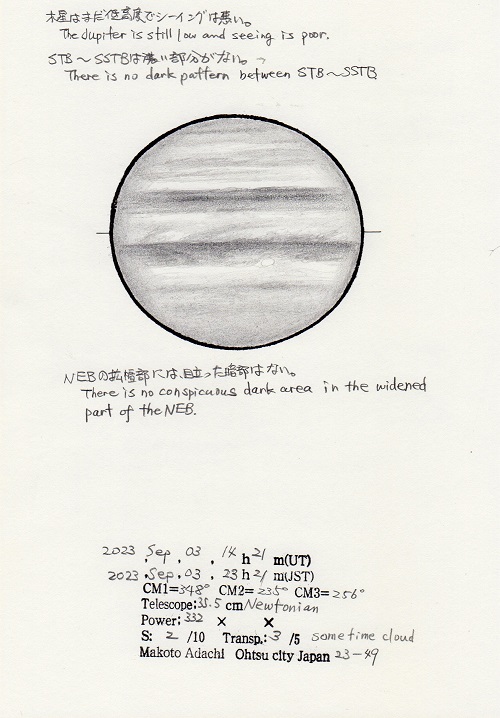 木星はまだ低高度でシーイングは悪い。
The Jupiter is still low and seeing is poor.
STB～SSTBは濃い部分がない。
There is no dark pattern between STB～SSTB
NEBの拡幅部には、目立った暗部はない。
There is no conspicuous dark area in the widened
part of the NEB.
2023 , Sep , 03 , 14 h 21 m(UT)
2023 , Sep , 03 , 23 h 21 m(JST)
CM1=348° CM2=235° CM3=256°
Telescope:35.5 cm Newtonian
Power: 332 × ×
S: 2 /10 Transp.: 3 /5 sometime cloud
Makoto Adachi Ohtsu city Japan 23-49